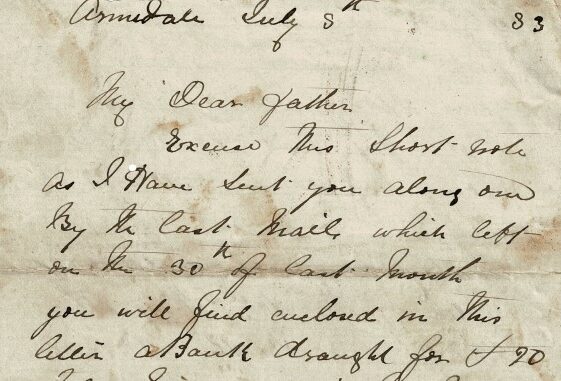 Armidale July 8th 83
My Dear father
Excuse This Short note
as I Have Sent you along one
By the last Mail which left
on the 30th of last Month
you will find enclosed in This
letter a Bank draught for £20